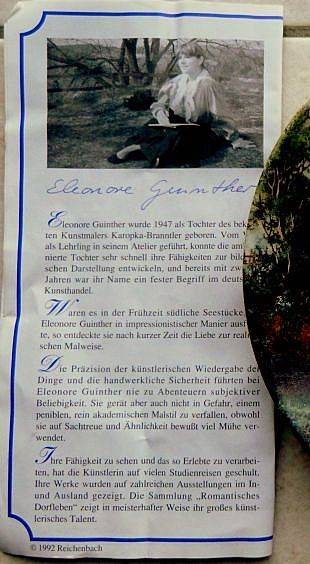 Eleonore Guinther
Eleonore Guinther wurde 1947 als Tochter des bek
ten Kunstmalers Karopka-Branntler geboren. Vom V
als Lehrling in seinem Atelier geführt, konnte die am
nierte Tochter sehr schnell ihre Fähigkeiten zur bild
schen Darstellung entwickeln, und bereits mit zw
Jahren war ihr Name ein fester Begriff im deuts
Kunsthandel.
Waren es in der Frühzeit südliche Seestücke,
Eleonore Guinther in impressionistischer Manier ausf
te, so entdeckte sie nach kurzer Zeit die Liebe zur real
schen Malweise.
Die Präzision der künstlerischen Wiedergabe de
Dinge und die handwerkliche Sicherheit führten bei
Eleonore Guinther nie zu Abenteuern subjektiver
Beliebigkeit. Sie gerät aber auch nicht in Gefahr, einem
peniblen, rein akademischen Malstil zu verfallen, obwohl
sie auf Sachtreue und Ähnlichkeit bewußt viel Mühe ver-
wendet.
Ihre Fähigkeit zu sehen und das so Erlebte zu verarbei-
ten, hat die Künstlerin auf vielen Studienreisen geschult.
Ihre Werke wurden auf zahlreichen Ausstellungen im In-
und Ausland gezeigt. Die Sammlung „Romantisches
Dorfleben" zeigt in meisterhafter Weise ihr großes künst-
lerisches Talent.
© 1992 Reichenbach